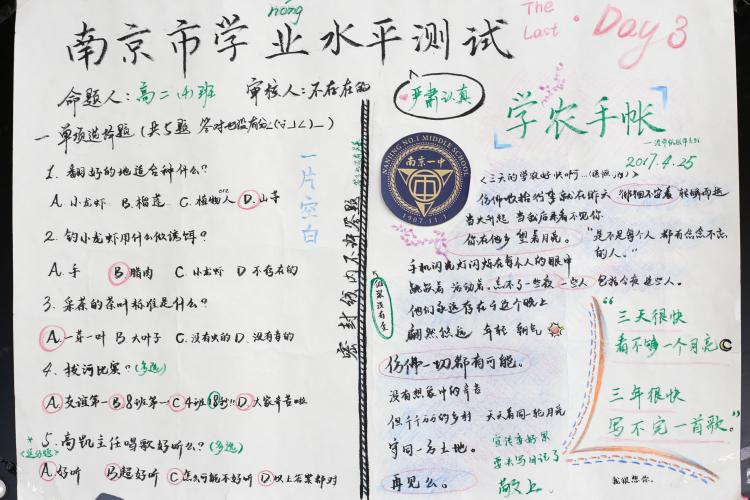 nóng
南京市学业水平测试
The Last. Day 3
命题人：高二(4)班 审核人：不存在的
严肃认真
一 单项选择题（共5题 答对也没有分
一片空白
1. 翻好的地适合种什么？
A. 小龙虾 B. 榴莲 C. 植物人 D. 山芋
2. 钓小龙虾用什么做诱饵？
A. 手 B 腊肉 C 小龙虾 D 不存在的
3. 采茶的茶叶标准是什么？
A. 一芽一叶 B 大叶子 C. 没有虫的 D. 没有毒的
4. 拔河比赛？(多选)
A. 友谊第一 B 8班第一 C 4班 D 大家辛苦啦
5. 高凯主任唱歌好听么？(多选)
<送分题>
A. 好听 B 超好听 C 怎么可能不好听 D 以上答案都对
密封线内不准答题
学农手帐
2017.4.25
NANJING NO.1 MIDDLE SCHOOL
南京一中
1907.11.1
<三天的学农好快啊...
仿佛收拾行李就在昨天 徘徊不定着 转瞬而逝
当大升起 当我后来看不见你
你在他乡 望着月亮。
"是不是每个人 都有念念不忘的人。"
手机闪光灯闪烁在每个人的眼中
跳跃着 活动着。忘不了一些夜 一些人 包括今夜 这些人。
他们永远存在于这个晚上
翩然悠远 年轻 朝气
仿佛一切都有可能。
没有想象中的辛苦
但千千万万的乡村 天天看同一轮月亮
守同一方土地。
再见么。
宣传委好累
要去写日记了
敬上
"三天很快
看不够一个月亮
三年很快
写不完一首歌。"
我很想你.